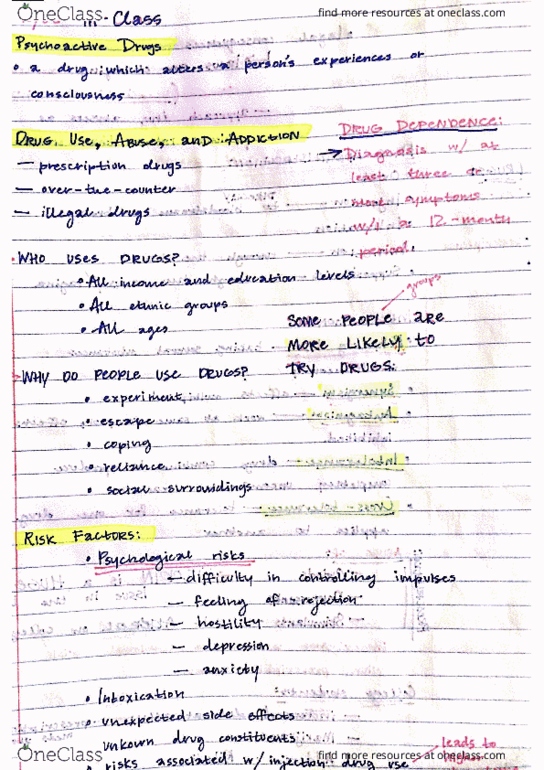 OneClass
find more resources at oneclass.com
In-Class
Psychoactive Drugs
• a drug which alters a person's experiences or
consciousness
DRUG USE, ABUSE, and ADDICTION
— prescription drugs
— over-the-counter
— illegal drugs
DRUG DEPENDENCE:
→ Diagnosis w/ at
least three or
more symptoms
w/i a 12-month
period.
• WHO USES DRUGS?
• All income and education levels
• All ethnic groups
• All ages
groups
SOME PEOPLE ARE
MORE LIKELY to
TRY DRUGS:
WHY DO PEOPLE USE DRUGS?
• experiment
• escape
• coping
• reliance
• social surroundings
RISK FACTORS:
• Psychological risks
— difficulty in controlling impulses
— feeling of rejection
— hostility
— depression
— anxiety
• Intoxication
• unexpected side effects
unkown drug constituents
• risks associated w/ injection drug use
leads to
OneClass
find more resources at oneclass.com